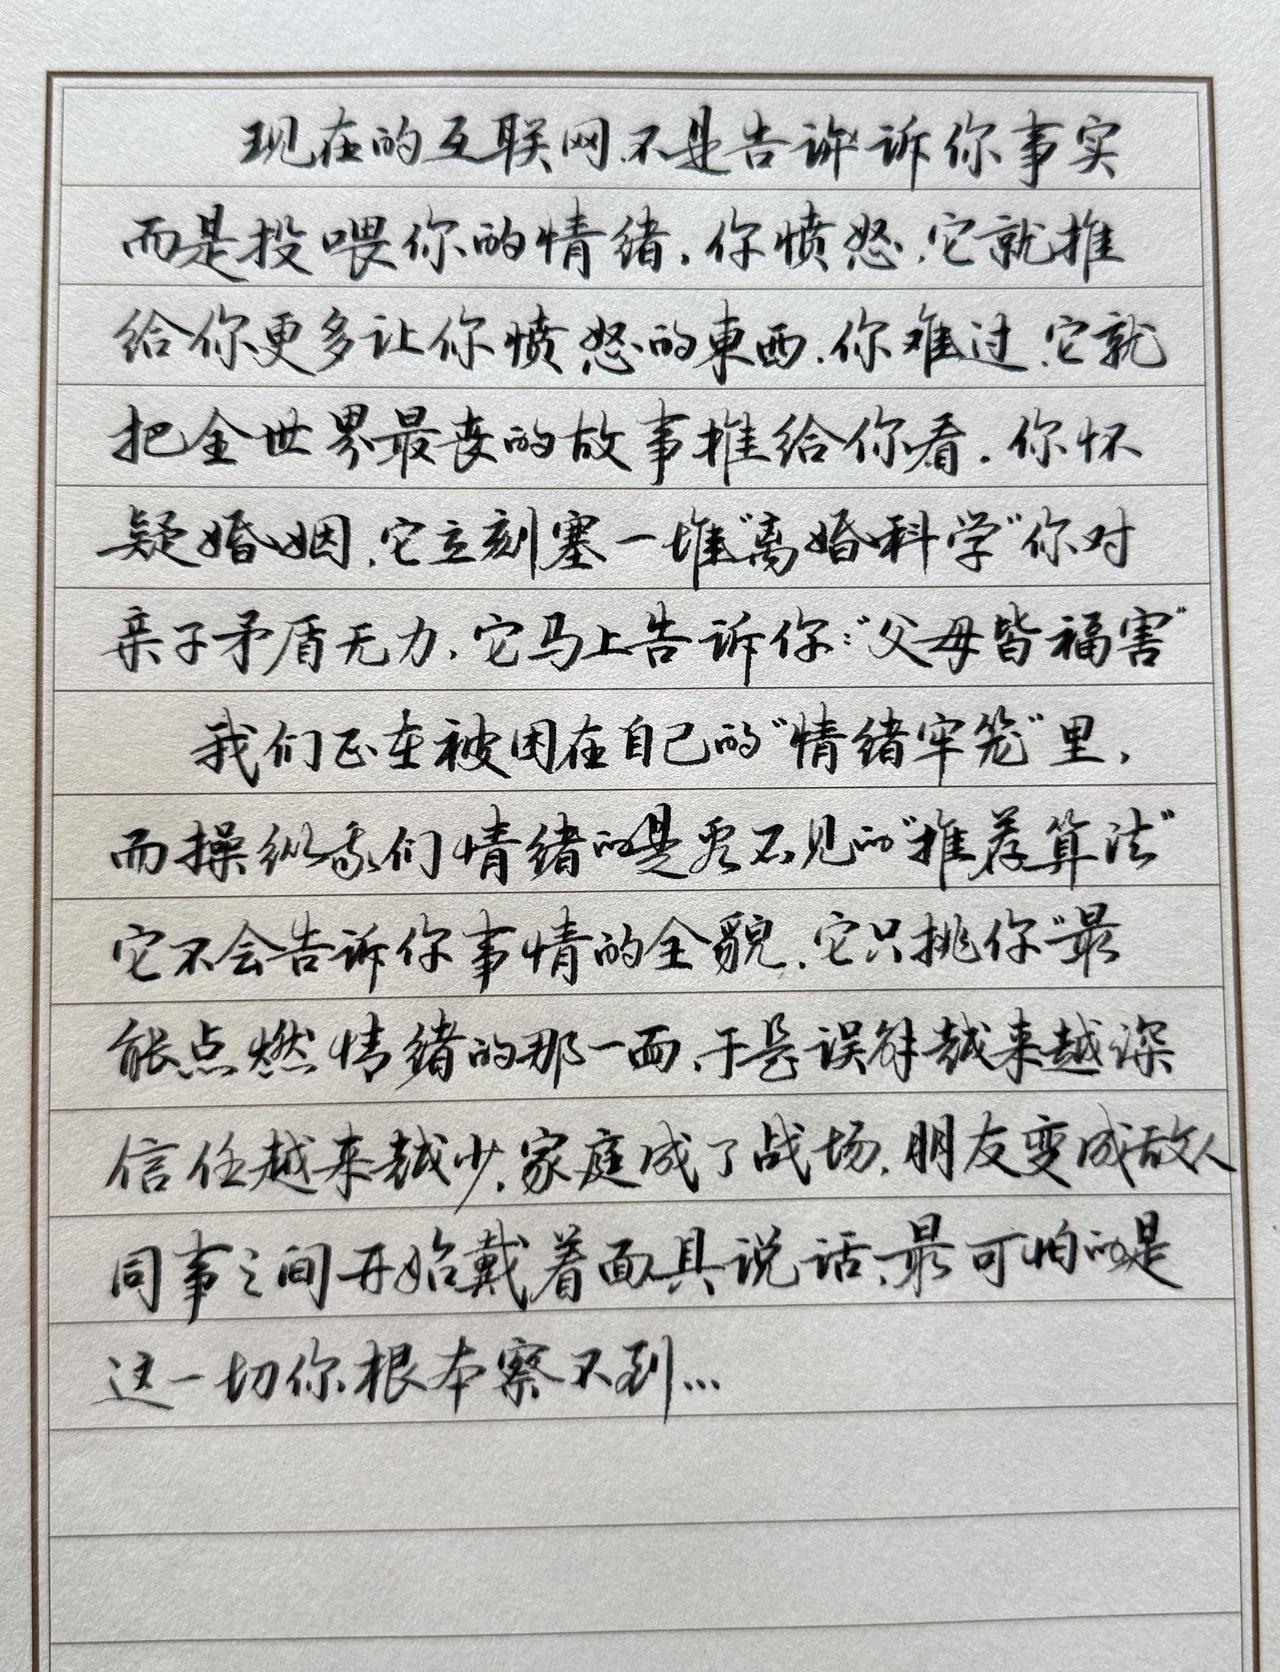 现在的互联网.不是告诉诉你事实
而是投喂你的情绪.你愤怒.它就推
给你更多让你愤怒的東西.你难过.它就
把全世界最丧的故事推给你看.你怀
疑婚姻.它立刻塞一堆"离婚科学"你对
亲子矛盾无力.它马上告诉你:"父母皆福害"
我们正在被困在自己的"情绪牢笼"里,
而操纵我们情绪的是看不见的"推荐算法"
它不会告诉你事情的全貌.它只挑你"最
能点燃情绪的那一面.于是误解越来越深
信任越来越少.家庭成了战场.朋友变成敌人
同事之间开始戴着面具说话.最可怕的是
这一切你根本察不到...